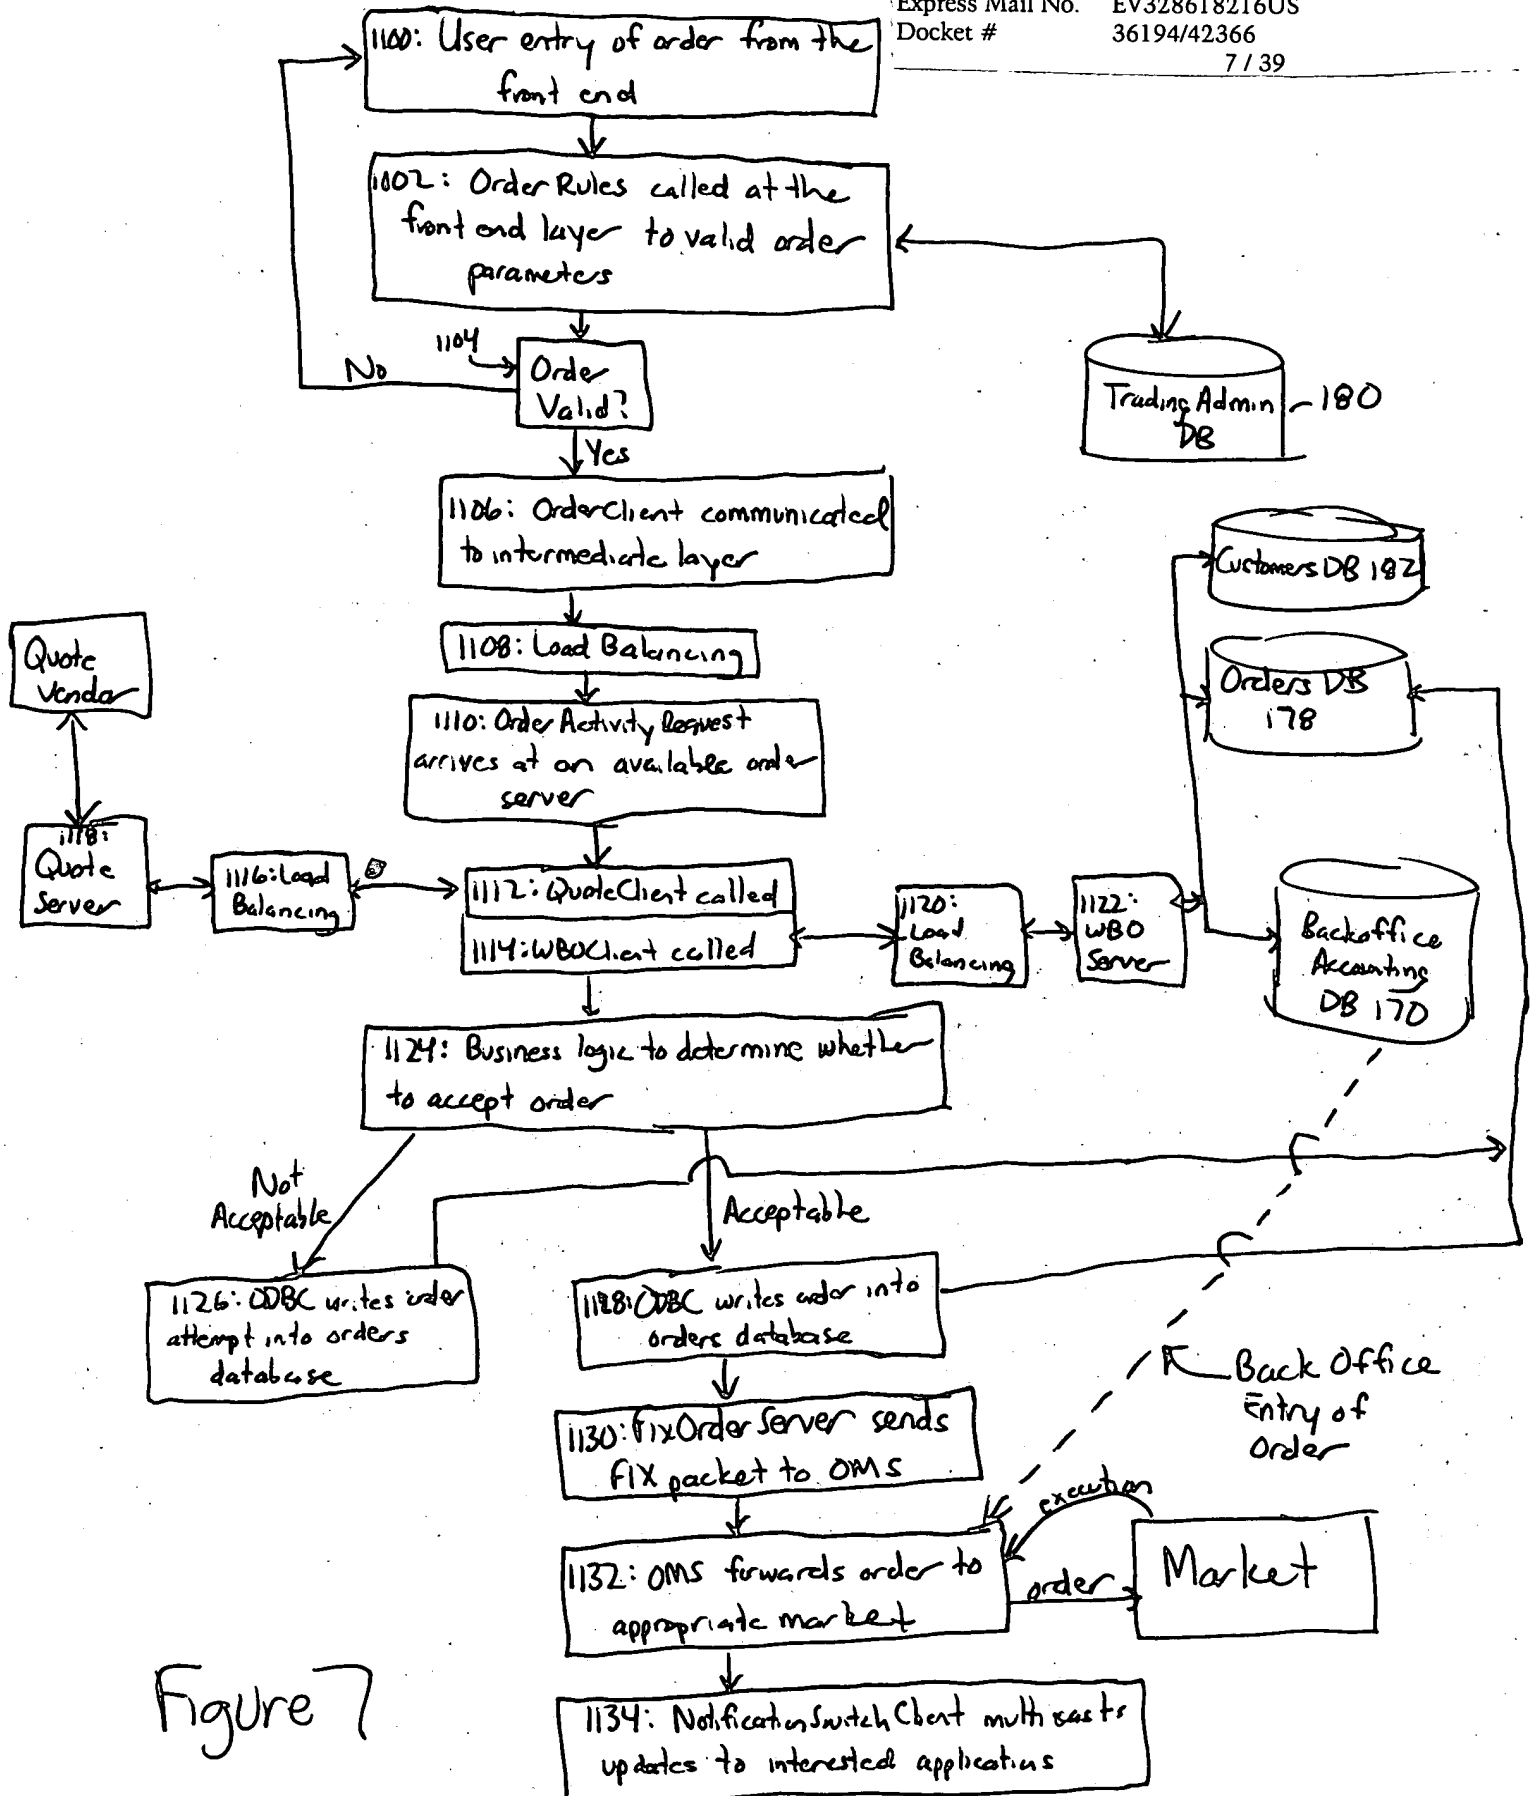 Express Mail No. EV328618216US
Docket # 36194/42366
7 / 39
1100: User entry of order from the
front end
1002: Order Rules called at the
front end layer to valid order
parameters
1104
No
Order
Valid?
Yes
Trading Admin
DB
180
1106: OrderClient communicated
to intermediate layer
Customers DB 182
1108: Load Balancing
Quote
Vendor
Orders DB
178
1110: Order Activity Request
arrives at an available order
server
1118:
Quote
Server
1116: Load
Balancing
1112: QuoteClient called
1114: WBOClient called
1120:
Load
Balancing
1122:
WBO
Server
Backoffice
Accounting
DB 170
1124: Business logic to determine whether
to accept order
Not
Acceptable
Acceptable
1126: ODBC writes order
attempt into orders
database
1128: ODBC writes order into
orders database
Back Office
Entry of
Order
1130: FixOrderServer sends
FIX packet to OMS
execution
1132: OMS forwards order to
appropriate market
order
Market
Figure 7
1134: NotificationSwitchClient multicasts
updates to interested applications